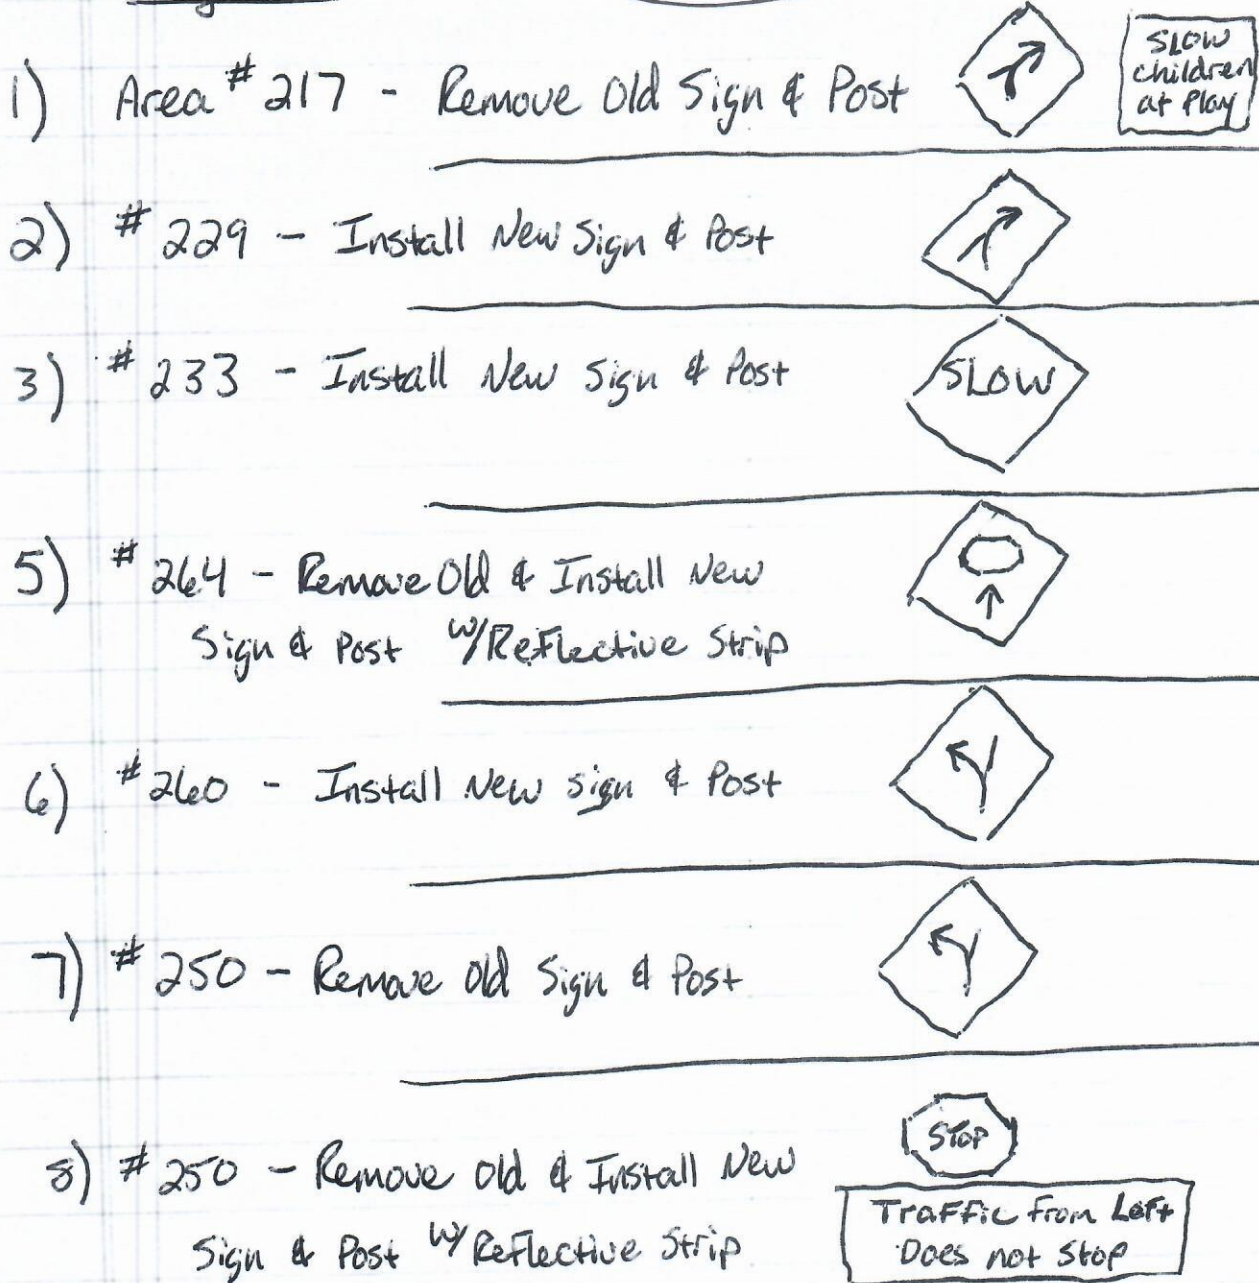 1) Area # 217 - Remove Old Sign & Post
SLOW
children
at Play
2) # 229 - Install New Sign & Post
3) # 233 - Install New Sign & Post
SLOW
5) # 264 - Remove Old & Install New
Sign & Post w/Reflective Strip
6) # 260 - Install New sign & Post
7) # 250 - Remove Old Sign & Post
8) # 250 - Remove Old & Install New
Sign & Post w/ Reflective Strip
STOP
Traffic From Left
Does not Stop